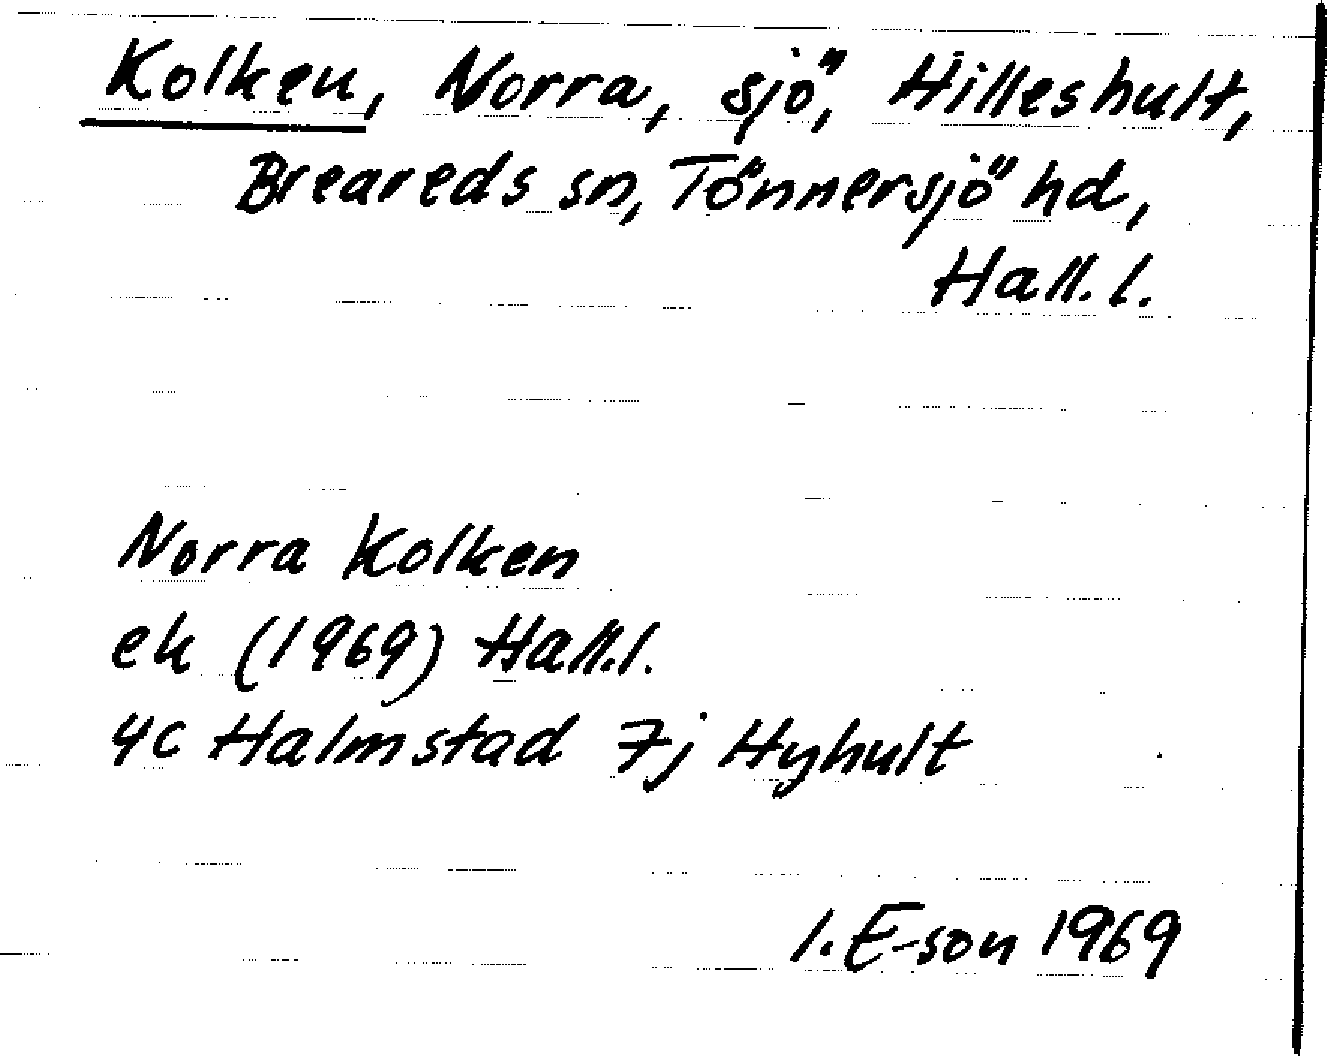 Kolken, Norra, sjö, Hilleshult,
Breareds sn, Tönnersjö hd,
Hall. l.
Norra Kolken
ek (1969) Hall. l.
4c Halmstad 7j Hyhult
I. E-son 1969